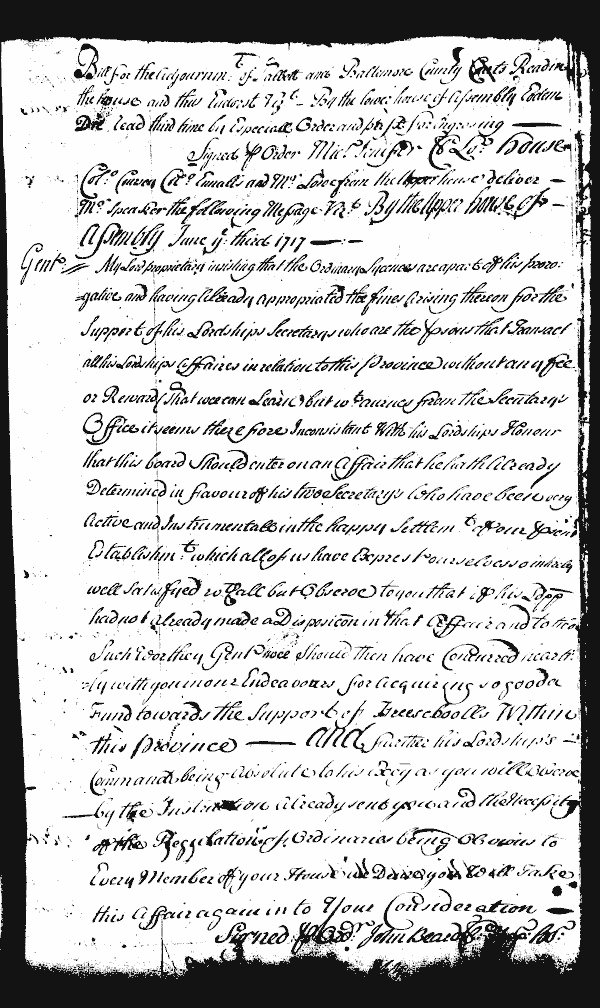 Bill for the Adjournmt. of Talbott and Baltemore County Courts Read in
the house and thus Endorst Vizt. By the lower house of Assembly Eodem
Die Read third time by Especiall Order and past for Ingrosing
Signed p Order Micl. Jenifer Cl Lor. house
Colo. Colo. Ennalls and Mr. Love from the Upper house deliver
Mr. Speaker the following Message Vizt. By the Upper house of As
Assembly June ye third 1717
Gent.
My Lord proprietary insisting that the Ordinary Lycences are a part of his prero
gative and having already appropriated the fines arising thereon for the
Support of his Lordships Secretarys who are the psons that Transact
all his Lordships Affaires in relation to this Province without any fee
or Reward (that wee can Learn) but wt. accrues from the Secretary's
Office it seems therefore Inconsistant With his Lordships Honour
that this board Should enter on an Affair that he hath Already
Determined in favour of his two Secretarys who have been very
Active and Instrumentall in the happy Settlemt. of our psent
Establishmt. which all of us have Exprest ourselves so intirely
well Satisfyed wthall but Observe to you that if his Ldpp
had not already made a Disposicon in that Affair and to two
Such Worthey Gentn. wee Should then have Concurred heart
ily with you in our Endeavours for acquiring so good a
Fund towards the Support of Freeschooll's Within
this Province and further his Lordship's
Command being absolute to his Exy as you will Observe
by the Instruction Already sent you and the Necessity
of the Regulation of Ordinaries being Obvious to
Every Member of your House we Desire you Will Take
this Affair again into Your Consideration
Signed p Ordr. John Beard Cl. Up. Ho.